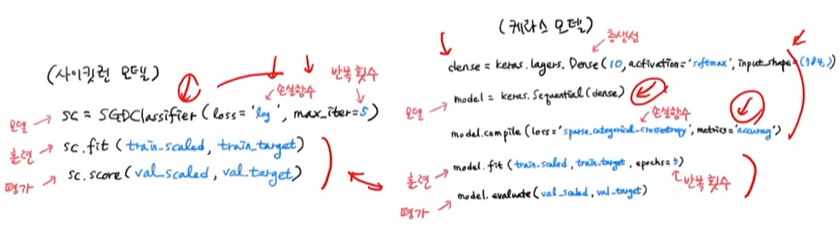 (사이킷런 모델)
손실함수
반복 횟수
모델 → sc = SGDClassifier (loss='log', max_iter=5)
훈련 → sc.fit (train_scaled, train_target)
평가 → sc.score (val_scaled, val_target)
(케라스 모델)
층생성
dense = keras.layers.Dense (10, activation='softmax', input_shape=(784,))
모델 → model = keras.Sequential (dense)
손실함수
model.compile (loss='sparse_categorical_crossentropy', metrics='accuracy')
훈련 → model.fit (train_scaled, train_target, epochs=5)
반복 횟수
평가 → model.evaluate (val_scaled, val_target)